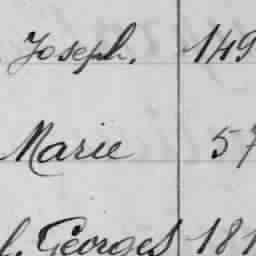 Joseph. 149
Marie 57
f. Georges 181